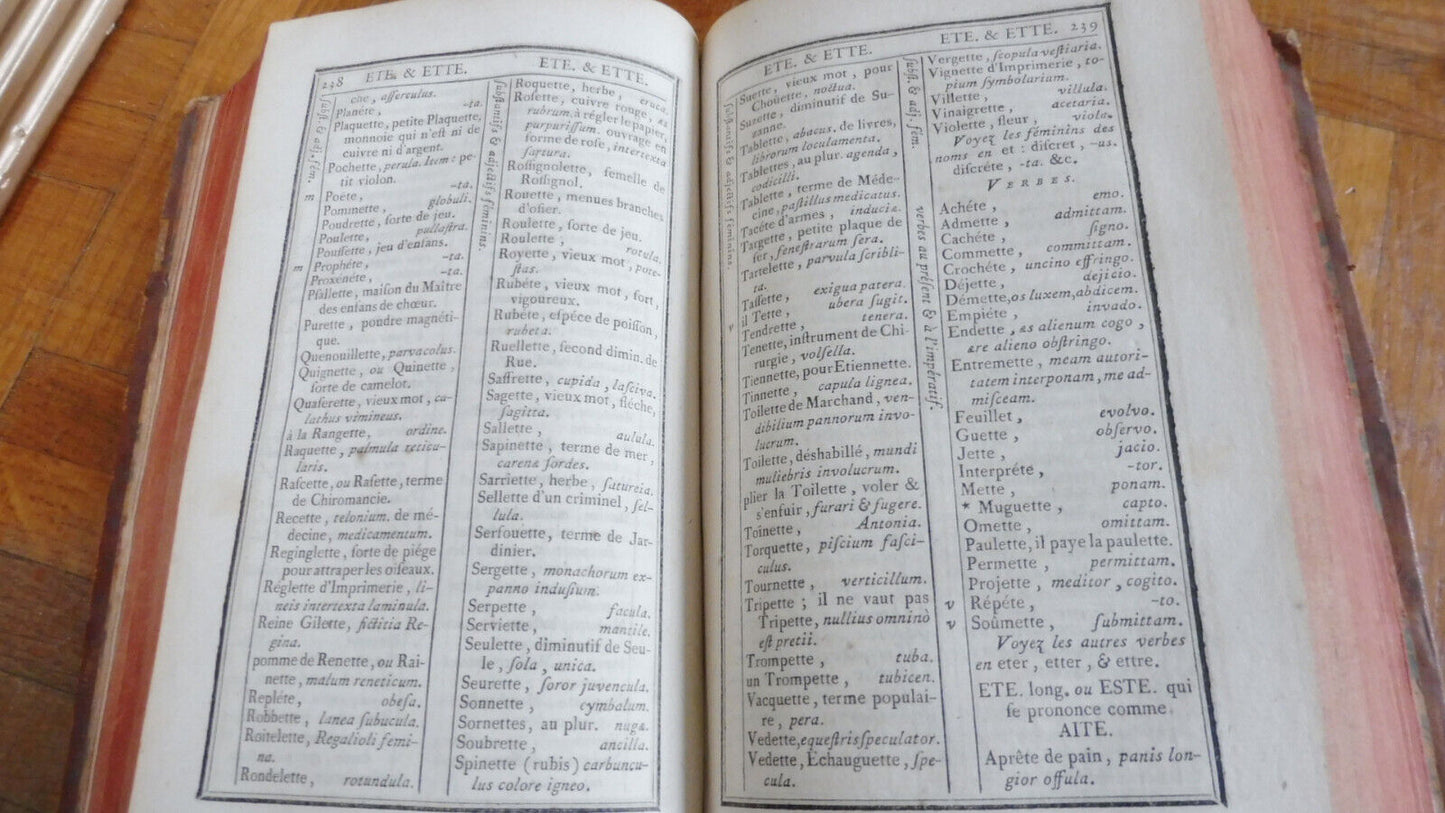 238 ETE. & ETTE. ETE. & ETTE.
Subst. & adj. fém.
che, asserculus.
Planéte, -ta.
Plaquette, petite Plaquette,
monnoie qui n'est ni de
cuivre ni d'argent.
Pochette, perula. Item: pe-
tit violon.
m Poëte, -ta.
Pommette, globuli.
Poudrette, sorte de jeu.
Poulette, pullastra.
Poussette, jeu d'enfans.
m Prophéte, -ta.
Proxenéte, -ta.
Psallette, maison du Maître
des enfans de chœur.
Purette, poudre magnéti-
que.
Quenouillette, parvacolus.
Quignette, ou Quinette,
sorte de camelot.
Quaserette, vieux mot, ca-
lathus vimineus.
à la Rangette, ordine.
Raquette, palmula reticu-
laris.
Rascette, ou Rasette, terme
de Chiromancie.
Recette, telonium. de mé-
decine, medicamentum.
Reginglette, sorte de piége
pour attraper les oiseaux.
Réglette d'Imprimerie, li-
neis intertexta laminula.
Reine Gilette, fictitia Re-
gina.
pomme de Renette, ou Rai-
nette, malum reneticum.
Repléte, obesa.
Robbette, lanea subucula.
Roitelette, Regalioli femi-
na.
Rondelette, rotundula.
Substantifs & adjectifs féminins.
Roquette, herbe, eruca.
Rosette, cuivre rouge, æs
rubrum. à régler le papier,
purpurissum. ouvrage en
forme de rose, intertexta
sartura.
Rossignolette, femelle de
Rossignol.
Rouette, menues branches
d'osier.
Roulette, sorte de jeu.
Roulette, rotula.
Royette, vieux mot, pote-
stas.
Rubéte, vieux mot, fort,
vigoureux.
Rubéte, espéce de poisson,
rubeta.
Ruellette, second dimin. de
Rue.
Saffrette, cupida, lasciva.
Sagette, vieux mot, fléche,
sagitta.
Sallette, aulula.
Sapinette, terme de mer,
carenæ sordes.
Sarriette, herbe, satureia.
Sellette d'un criminel, sel-
lula.
Serfouette, terme de Jar-
dinier.
Sergette, monachorum ex-
panno indusium.
Serpette, facula.
Serviette, mantile.
Seulette, diminutif de Seu-
le, sola, unica.
Seurette, soror juvencula.
Sonnette, cymbalum.
Sornettes, au plur. nugæ.
Soubrette, ancilla.
Spinette (rubis) carbuncu-
lus colore igneo.
ETE. & ETTE. ETE. & ETTE. 239
Substantifs & adjectifs féminins.
Suette, vieux mot, pour
Chouette, noctua.
Suzette, diminutif de Su-
zanne.
Tablette, abacus. de livres,
librorum loculamenta.
Tablettes, au plur. agenda,
codicilli.
Tablette, terme de Méde-
cine, pastillus medicatus.
Tacéte d'armes, induciæ.
Targette, petite plaque de
fer, fenestrarum sera.
Tartelette, parvula scribli-
ta.
Tassette, exigua patera.
v il Tette, ubera sugit.
Tendrette, tenera.
Tenette, instrument de Chi-
rurgie, volsella.
Tiennette, pour Etiennette.
Tinnette, capula lignea.
Toilette de Marchand, ven-
dibilium pannorum invo-
lucrum.
Toilette, déshabillé, mundi
muliebris involucrum.
plier la Toilette, voler &
s'enfuir, furari & fugere.
Toinette, Antonia.
Torquette, piscium fasci-
culus.
Tournette, verticillum.
Tripette; il ne vaut pas
Tripette, nullius omninò
est pretii.
Trompette, tuba.
un Trompette, tubicen.
Vacquette, terme populai-
re, pera.
Vedette, equestris speculator.
Vedette, Echauguette, spe-
cula.
Subst. & adj. fém.
Vergette, scopula vestiaria.
Vignette d'Imprimerie, to-
pium symbolarium.
Villette, villula.
Vinaigrette, acetaria.
Violette, fleur, viola.
Voyez les féminins des
noms en et : discret, -us.
discréte, -ta. &c.
VERBES.
verbes au présent & à l'impératif.
Achéte, emo.
Admette, admittam.
Cachéte, signo.
Commette, committam.
Crochéte, uncino effringo.
Déjette, dejicio.
Démette, os luxem, abdicem.
Empiéte, invado.
Endette, æs alienum cogo,
ære alieno obstringo.
Entremette, meam autori-
tatem interponam, me ad-
misceam.
Feuillet, evolvo.
Guette, observo.
Jette, jacio.
Interpréte, -tor.
Mette, ponam.
* Muguette, capto.
Omette, omittam.
Paulette, il paye la paulette.
Permette, permittam.
Projette, meditor, cogito.
v Répéte, -to.
v Soûmette, submittam.
Voyez les autres verbes
en eter, etter, & ettre.
ETE. long. ou ESTE. qui
se prononce comme
AITE.
Aprête de pain, panis lon-
gior offula.